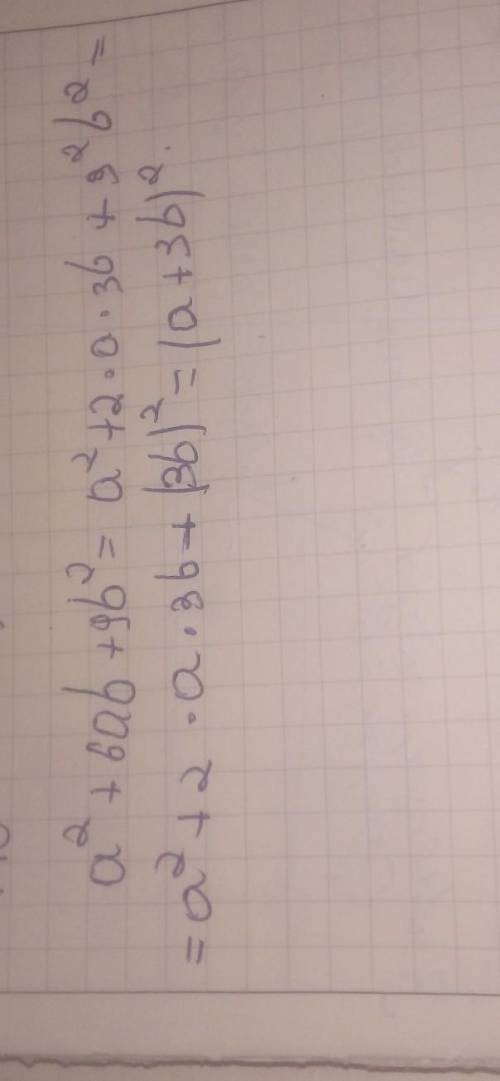 a² + 6ab + 9b² = a² + 2 · a · 3b + 3²b² =
= a² + 2 · a · 3b + (3b)² = (a + 3b)².